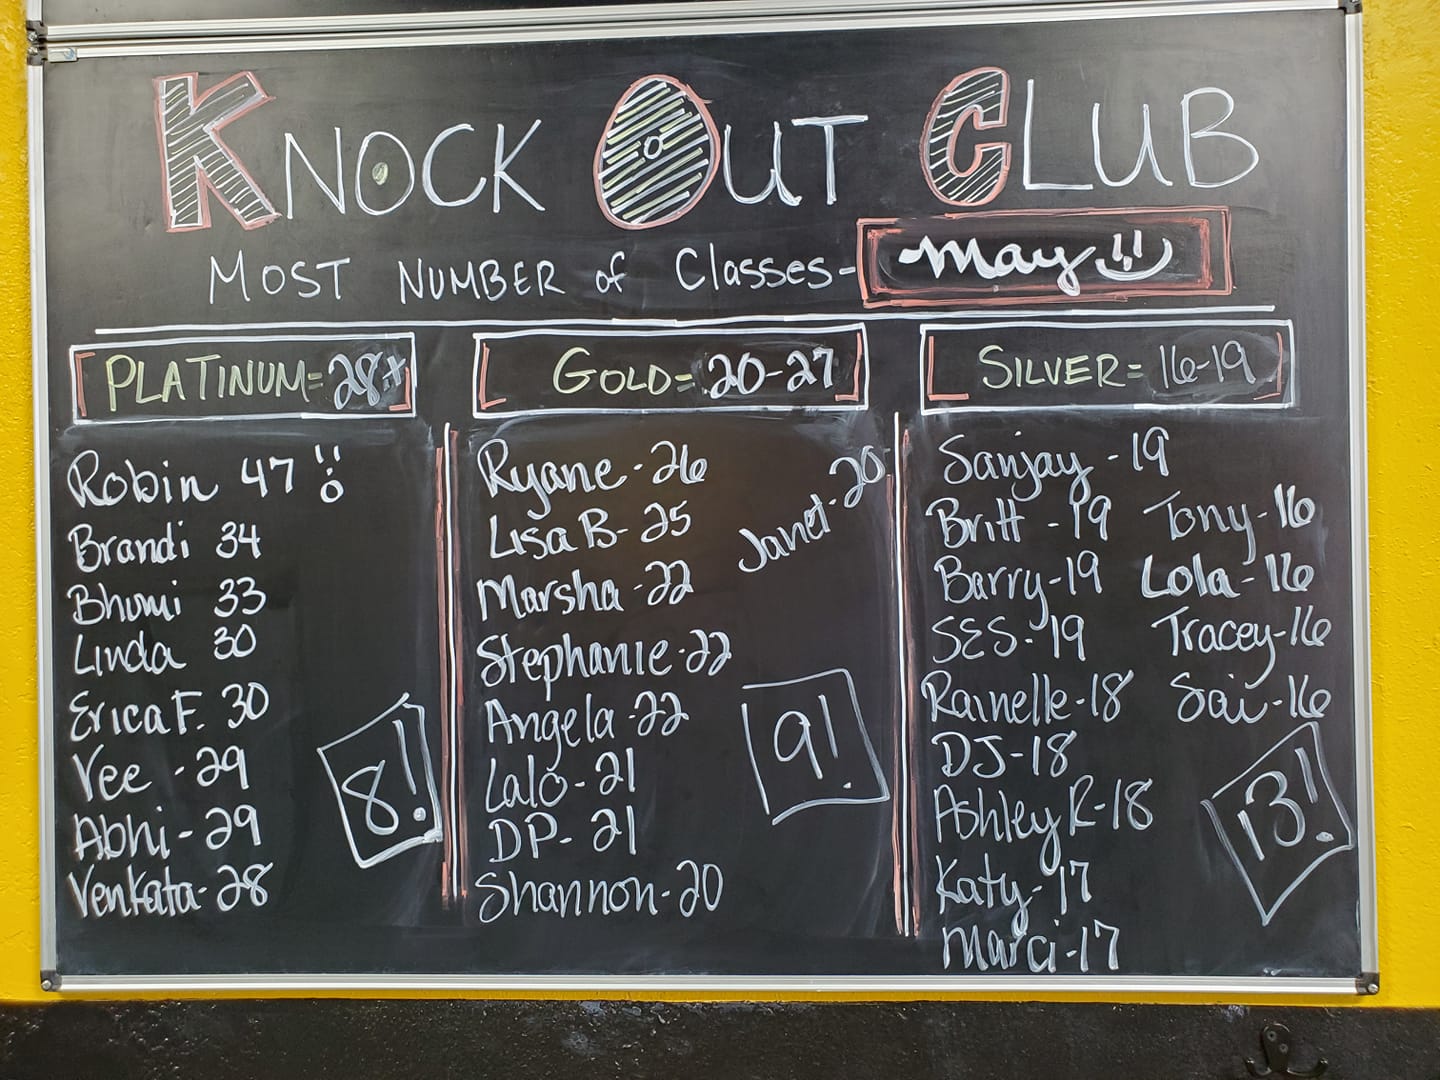 KNOCK OUT CLUB
MOST NUMBER of Classes- May
PLATINUM= 28+
Robin 47
Brandi 34
Bhumi 33
Linda 30
Erica F. 30
Vee - 29
Abhi - 29
Venkata - 28
8!
GOLD= 20-27
Ryane - 26
Lisa B - 25
Marsha - 22
Stephanie - 22
Angela - 22
Lalo - 21
DP - 21
Shannon - 20
Janet - 20
9!
SILVER= 16-19
Sanjay - 19
Britt - 19
Barry - 19
SES - 19
Rainelle - 18
DJ - 18
Ashley R - 18
Katy - 17
Marci - 17
Tony - 16
Lola - 16
Tracey - 16
Sai - 16
13!